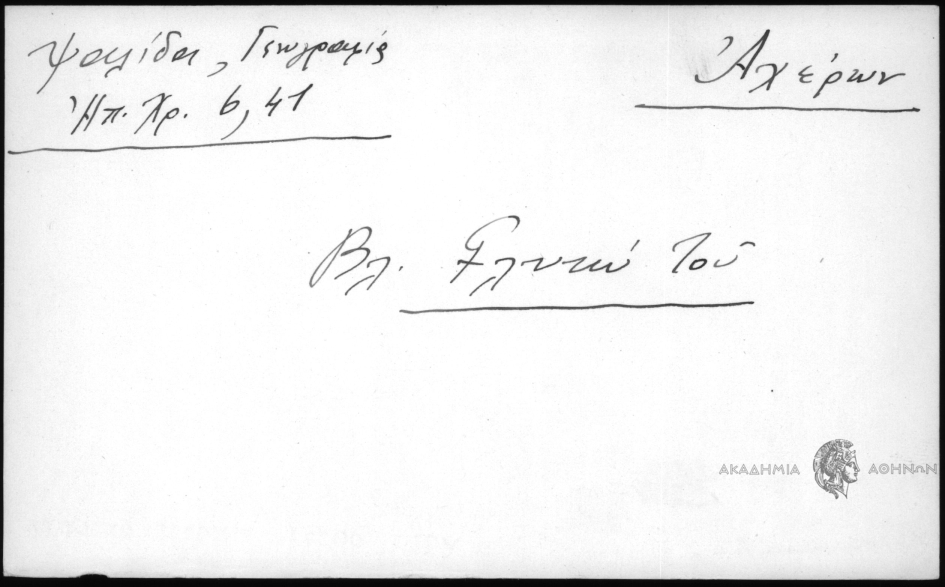 Ψαλίδα, Γεωγραφία
Ἠπ. Χρ. 6, 41
Ἀχέρων
Βλ. Γλυκύ Τοῦ
ΑΚΑΔΗΜΙΑ ΑΘΗΝΩΝ